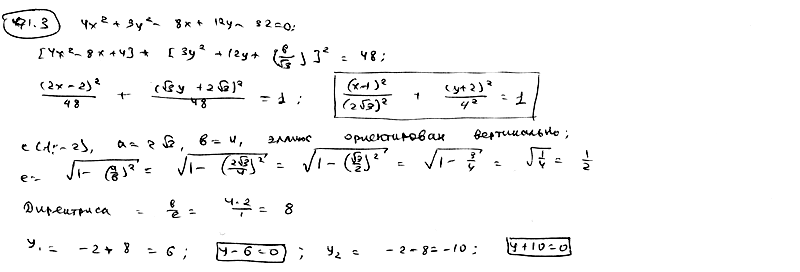 41.3 4x² + 3y² - 8x + 12y - 32 = 0;
[4x² - 8x + 4] + [3y² + 12y + (6/√3)]² = 48;
(2x - 2)²/48 + (√3y + 2√3)²/48 = 1; (x-1)²/(2√3)² + (y+2)²/4² = 1
c(1; -2), a = 2√3, b = 4, эллипс ориентирован вертикально;
e = √(1 - (a/b)²) = √(1 - (2√3/4)²) = √(1 - (√3/2)²) = √(1 - 3/4) = √(1/4) = 1/2
Директриса = b/e = 4·2/1 = 8
y₁ = -2 + 8 = 6; y - 6 = 0; y₂ = -2 - 8 = -10; y + 10 = 0